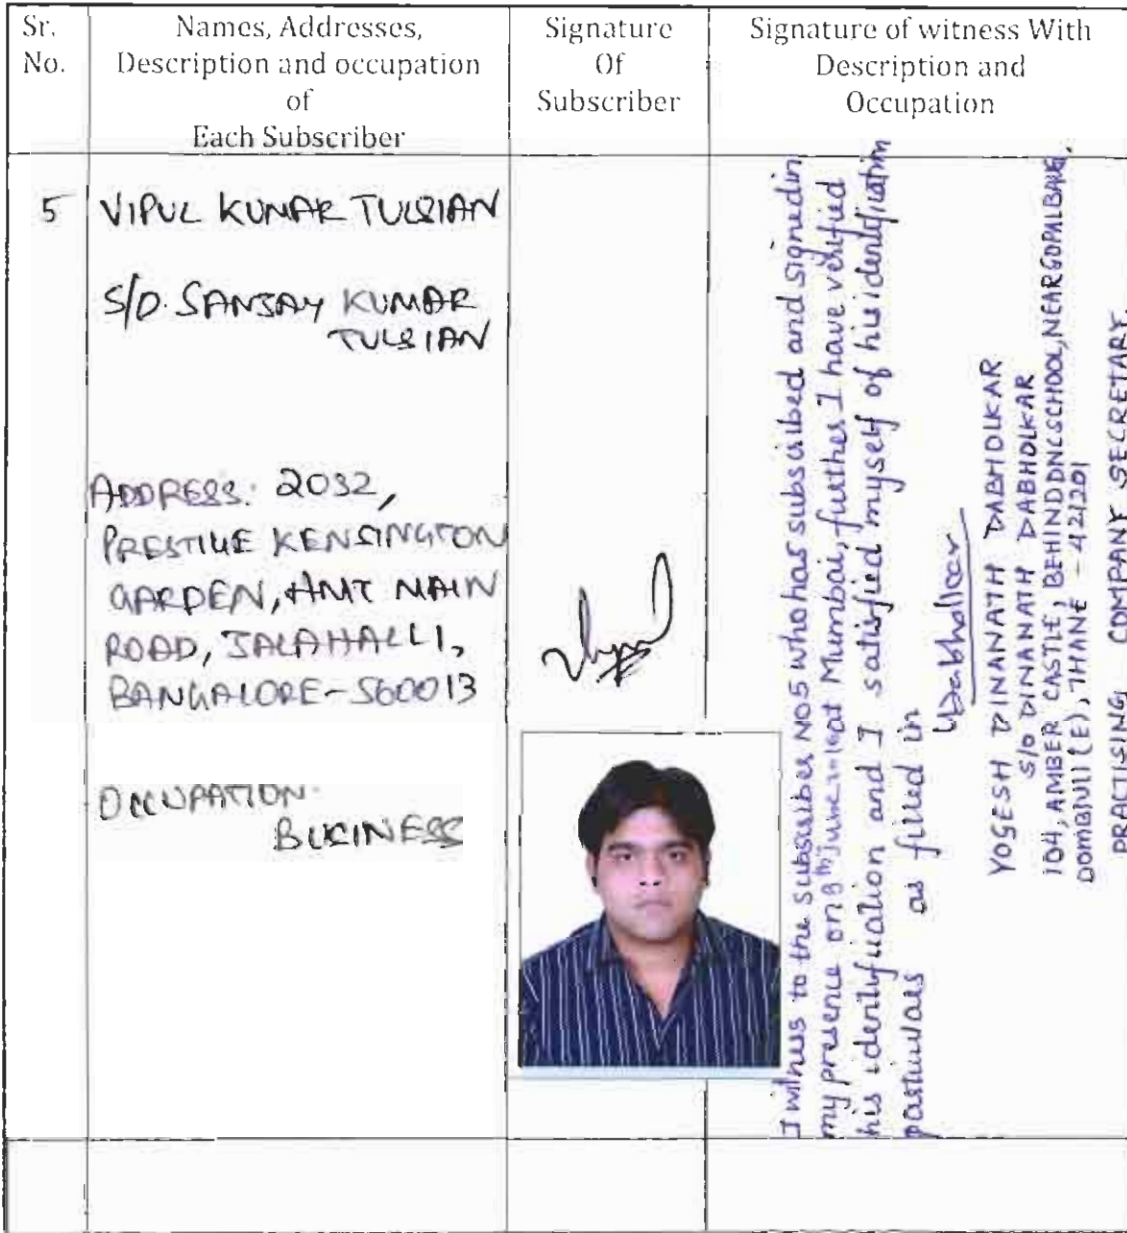 Sr.
No.
Names, Addresses,
Description and occupation
of
Each Subscriber
Signature
Of
Subscriber
Signature of witness With
Description and
Occupation
5
VIPUL KUMAR TULSIAN
S/O. SANJAY KUMAR
TULSIAN
ADDRESS: 2032,
PRESTIGE KENSINGTON
GARDEN, HMT MAIN
ROAD, JALAHALLI,
BANGALORE-560013
OCCUPATION:
BUSINESS
I witness to the subscriber NO5 who has subscribed and signed in
my presence on 8th June at Mumbai, further I have verified
his identification and I satisfied myself of his identification
particulars as filled in
Dabholkar
YOGESH DINANATH DABHOLKAR
S/O DINANATH DABHOLKAR
104, AMBER CASTLE, BEHIND DNC SCHOOL, NEAR GOPAL BAUG,
DOMBIVLI (E), THANE - 421201
PRACTISING COMPANY SECRETARY.